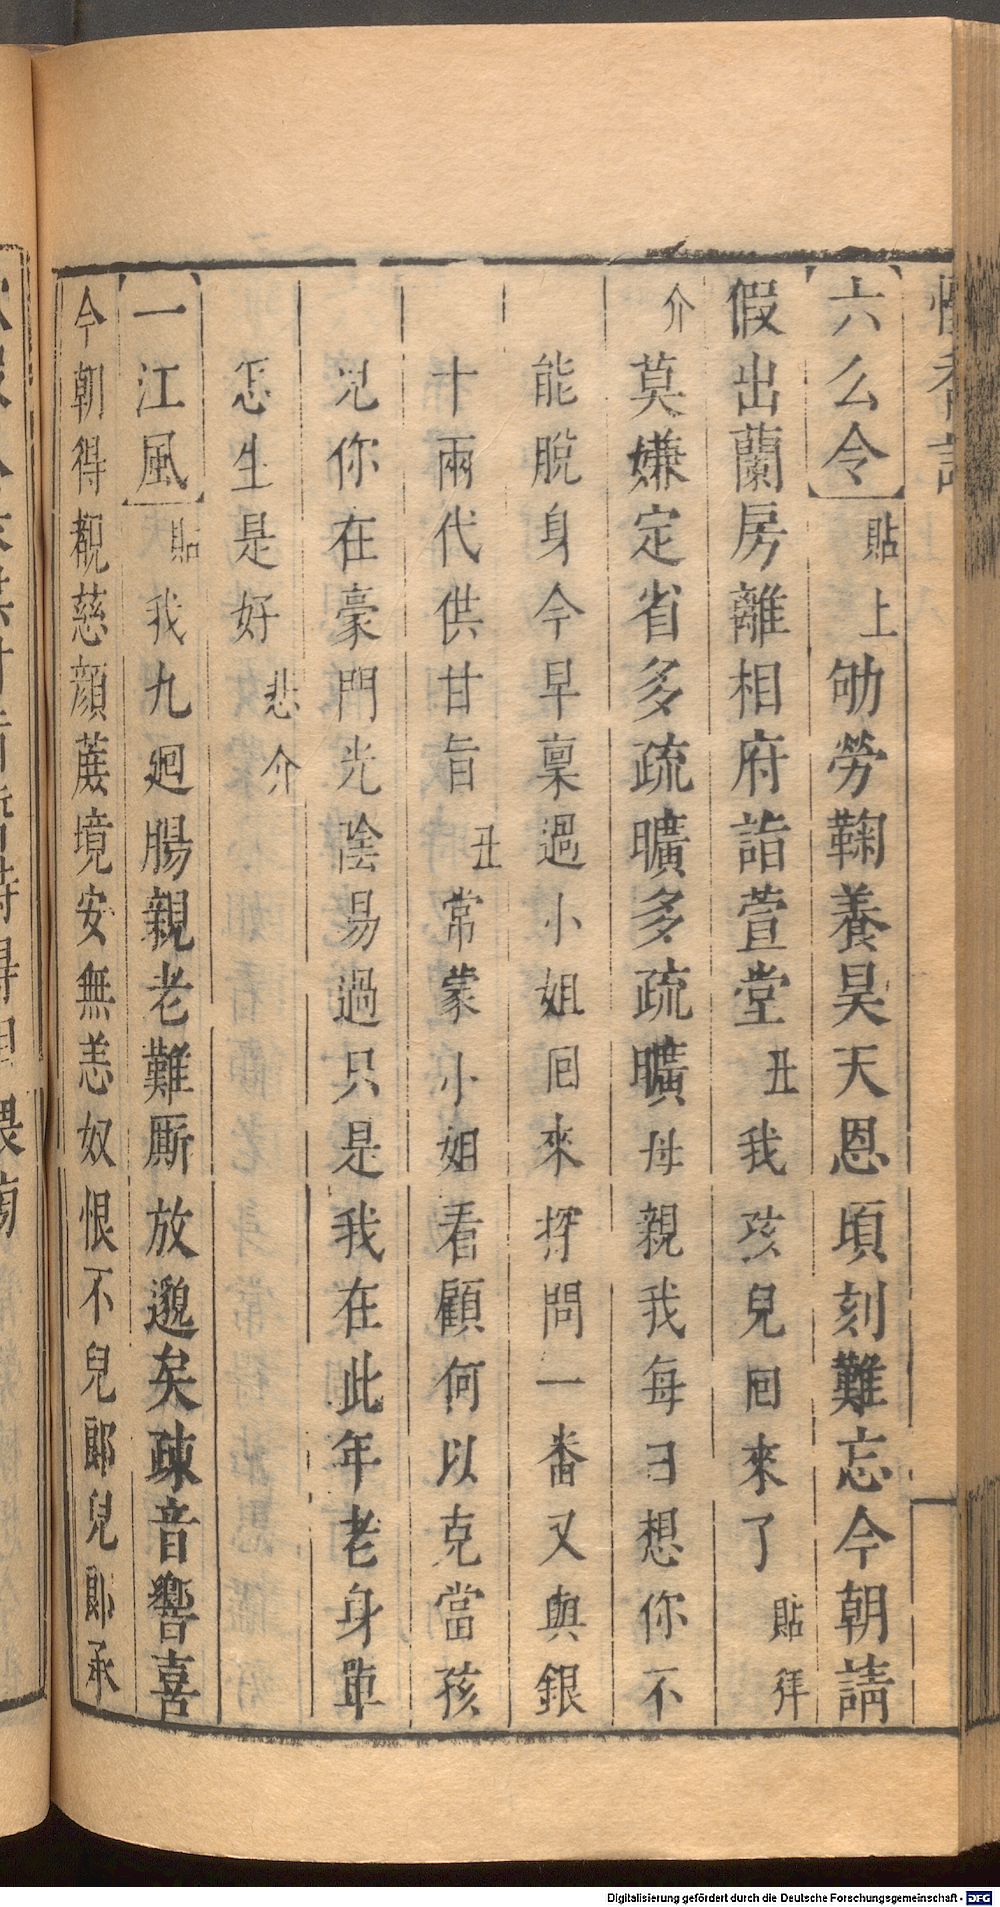 【六么令】貼上劬勞鞠養昊天恩頃刻難忘今朝請
假出蘭房離相府詣萱堂丑我孩兒囘來了貼拝
介莫嫌定省多疏曠多疏曠母親我每日想你不
能脫身今早稟過小姐囘來探問一番又與銀
十兩代供甘旨丑常蒙小姐看顧何以克當孩
兒你在豪門光陰易過只是我在此年老身單
怎生是好悲介
【一江風】貼我九廻腸親老難厮放邈矣疎音響喜
今朝得覩慈顔蔗境安無恙奴恨不兒郎兒郎承
Digitalisierung gefördert durch die Deutsche Forschungsgemeinschaft - DFG